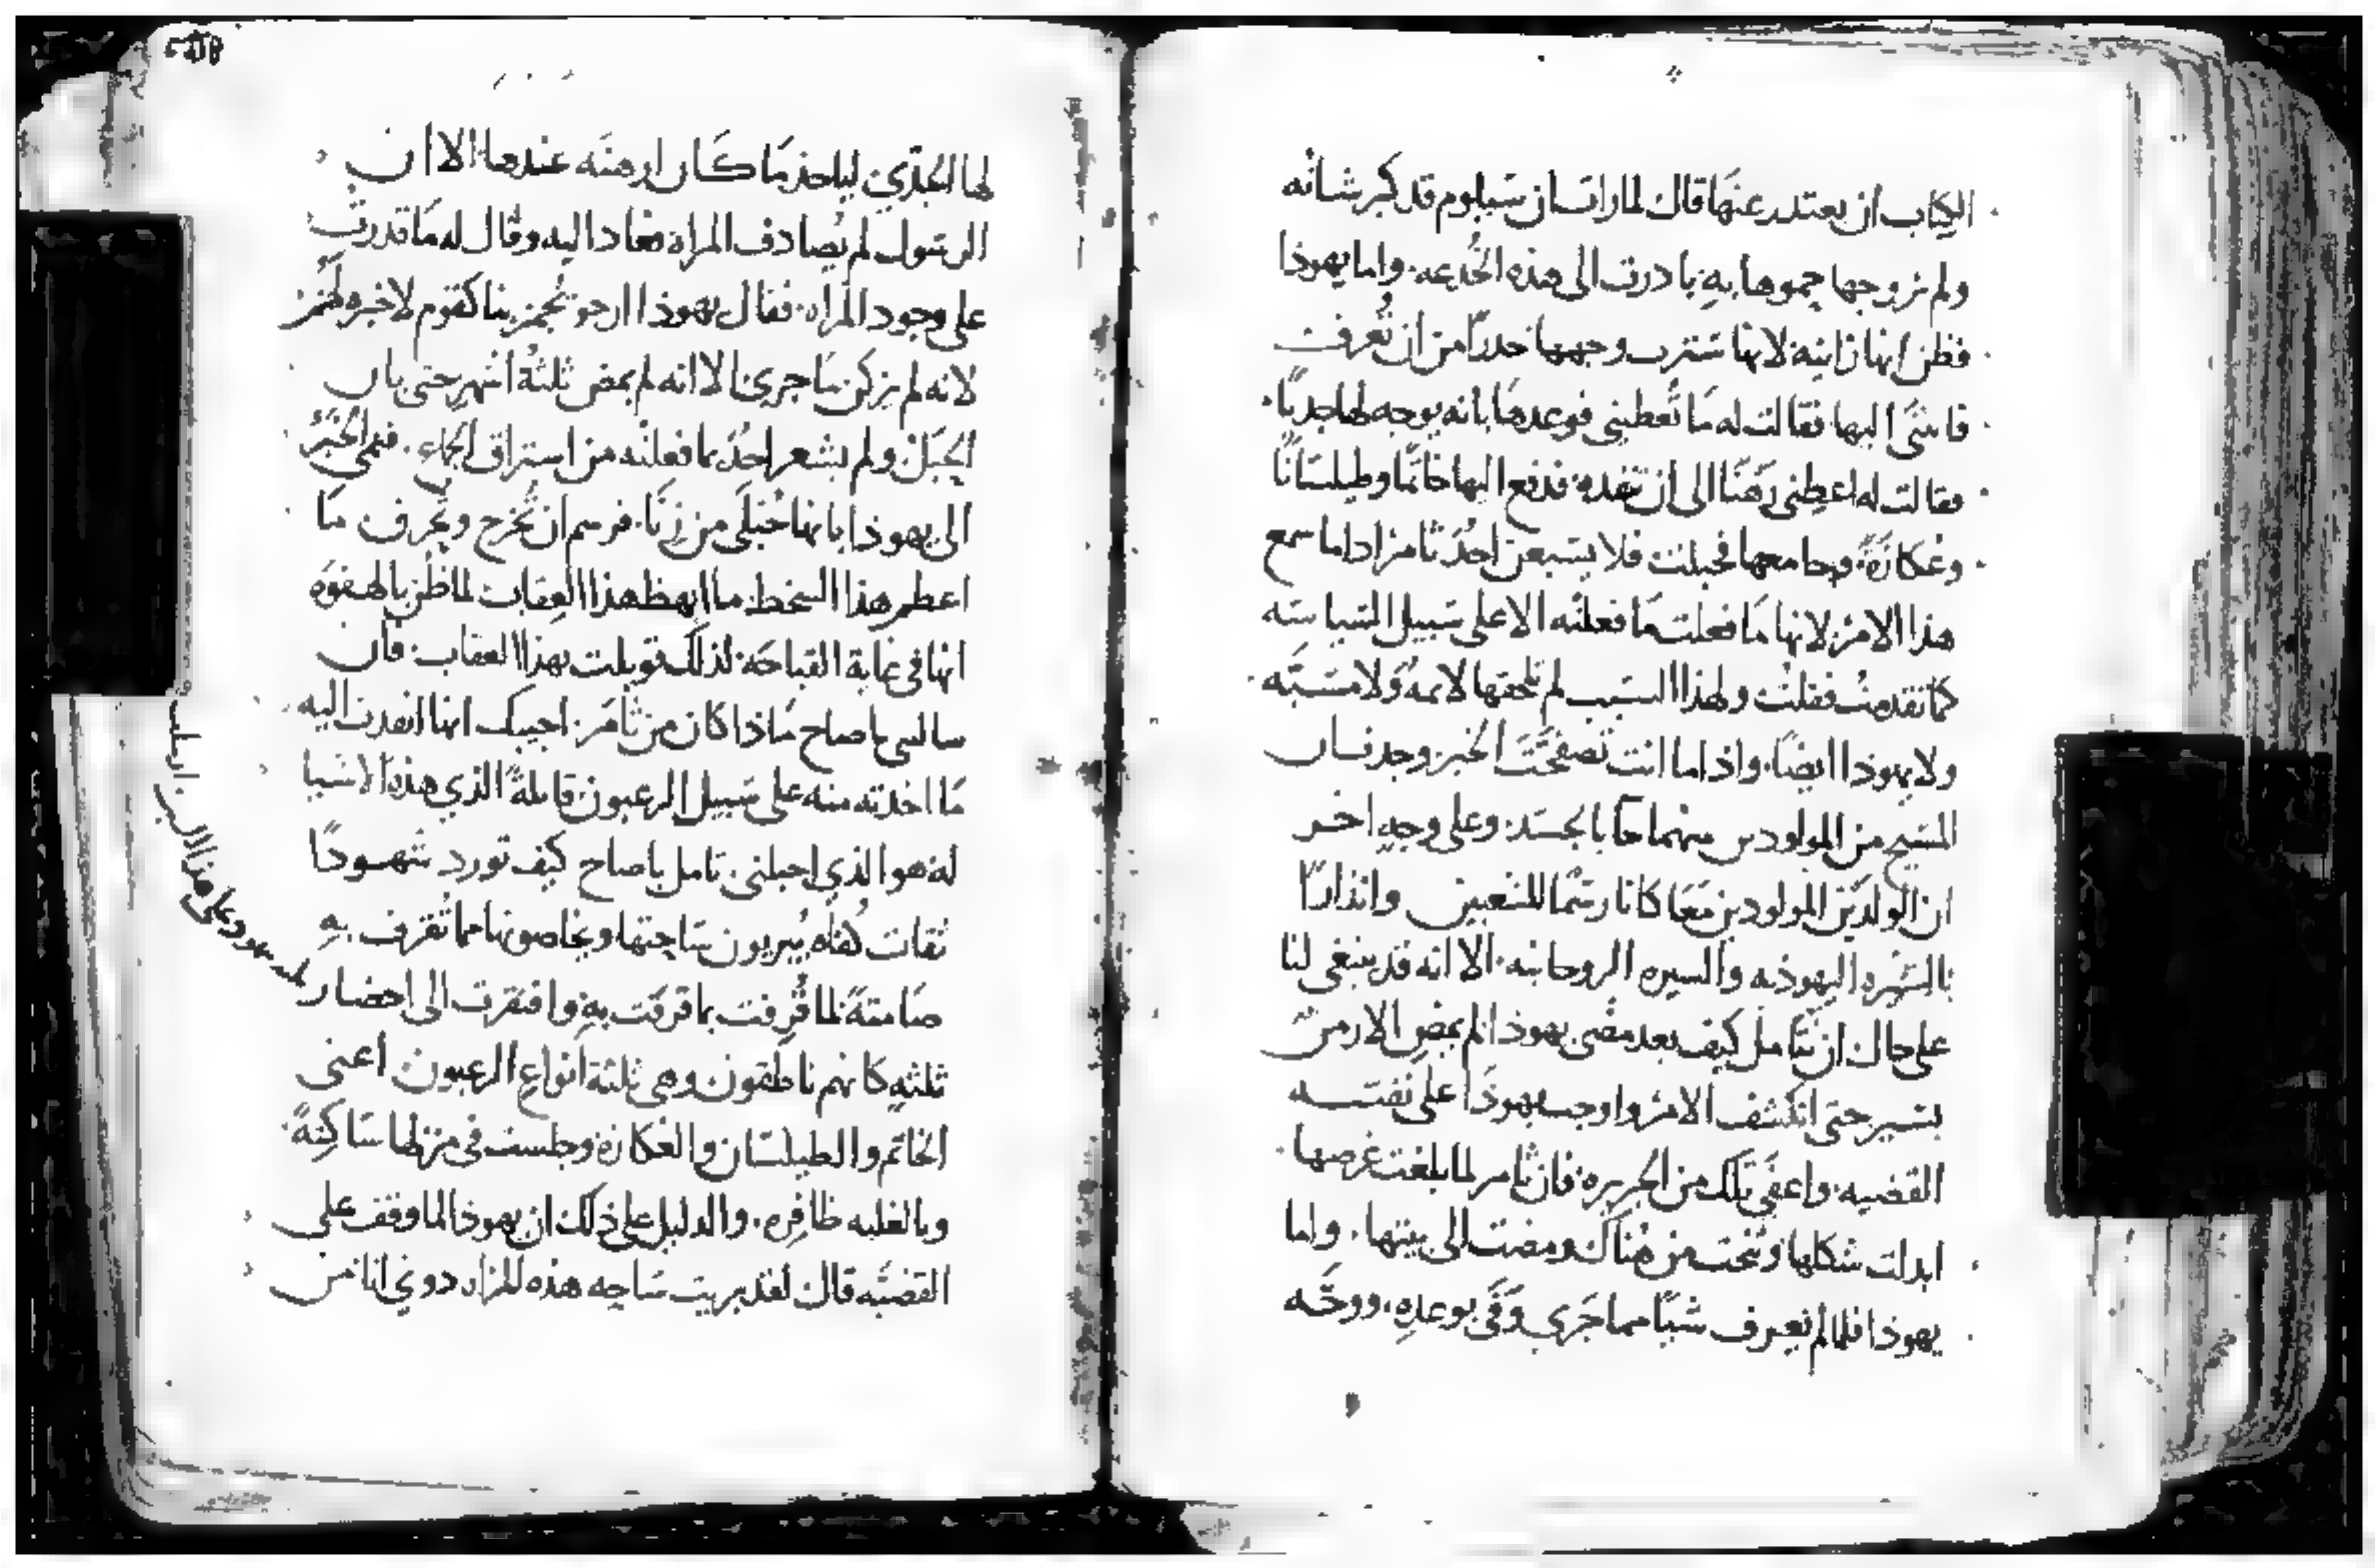 الكتاب ان يعتذر عنها قال لما رات ان سيلوم قد كبر شانه
ولم يزوجها حموها به بادرت الى هذه الخدعه. واما يهوذا
فظن انها زانيه لانها سترت وجهها حذرًا من ان تُعرفت
فانثنى اليها فقالت له مَا تُعطيني فوعدها بانه يوجه لها جديًا.
فقالت له اعطِنى رَهنًا الى ان تنفده فدفع اليها خاتمًا وطيلسَانًا
وعُكازَةً. وجامعها فحبلت فلا يتبعن احدٌ ثامر اذا ما سمع
هذا الامرٌ لانها مَا فعلت مَا فعلته الا على سَبيل السَياسَه
كما تقدمتُ فقلتُ ولهذا السَبب لم تلحقها لايمهٌ ولا مسَبَّه
ولا يهوذا ايضًا. واذا ما انت تصفّحَتَ الخبر وجدت ان
المسَيح من المولودين منهما جا بالجسَد. وعلى وجهٍ اخر
ان الولدَين المولودين مَعًا كانا رسَمًا للشعبين وانذارًا
بالسَيره اليهوذيه والسيره الروحانيه. الا انه قد ينبغى لنا
على حال ان نتامل كيف بعد مضُى يهوذا لم يمضِ الا زمنٌ
يسَير حتى انكشف الامرٌ واوجب يهوذَا على نفسَه
القضيه. واعفَى تلك من الجريره. فان ثامر لما بلغت غرضها.
ابدلت شكلها وتنحت من هُناك ومضت الى بيتها. واما
يهوذا فلما لم يعرف شيًا مما جَرَي وَفَى بوعدهِ. ووجَّه
لها الجَدْيَ لياخذ مَا كَان ارهنَه عندها الا ان
الرسَول لم يُصادف المراة فعاد اليه وقال له مَا قدرتُ
على وجود المراه. فقال يهوذا ارجو
لانه لم يزكن مَا جرى الا انه لم يمض ثلثةُ اشهرٍ حتى بان
الحَبَل ولم يشعر احدٌ بما فعلته من استراق الجماع. فنمى الخَبَرُ
الى يهوذا بانها حُبلَى من زِنًا. فرسم ان تُخرج وتُحرق مَا
اعظم هذا السَخط ما ابهظ هذا العِقاب لما ظُن بالهفوَه
انها فى غاية القباحَه لذلك قوبلت بهذا العقاب. فان
سالتنى ياصاح مَاذا كان من ثامَر. اجيبك انها انفدت اليه
مَا اخذته منه على سَبيل الرعبون قايلةً الذي هذه الاشيا
له هو الذي احبلنى. تامل ياصاح كيف تورد شهودًا
ثقات كُفاه يُبريون سَاحتها ويخلصونها مما تُقرف بهِ
صَامتهً لما قُرِفت بما قرفَت بهِ وافتقرت الى احضار
ثلثهٍ كانهم ناطقون وهى ثلثة انواع الرعبون اعنى
الخاتم والطيلسَان والعُكازه وجلسَت فى منزلها سَاكتهً.
وبالغلبه ظافِره. والدليل على ذلك ان يهوذا لما وقف على
القضيَّه قال لقد بريت سَاحه هذه المراه دوني انا من